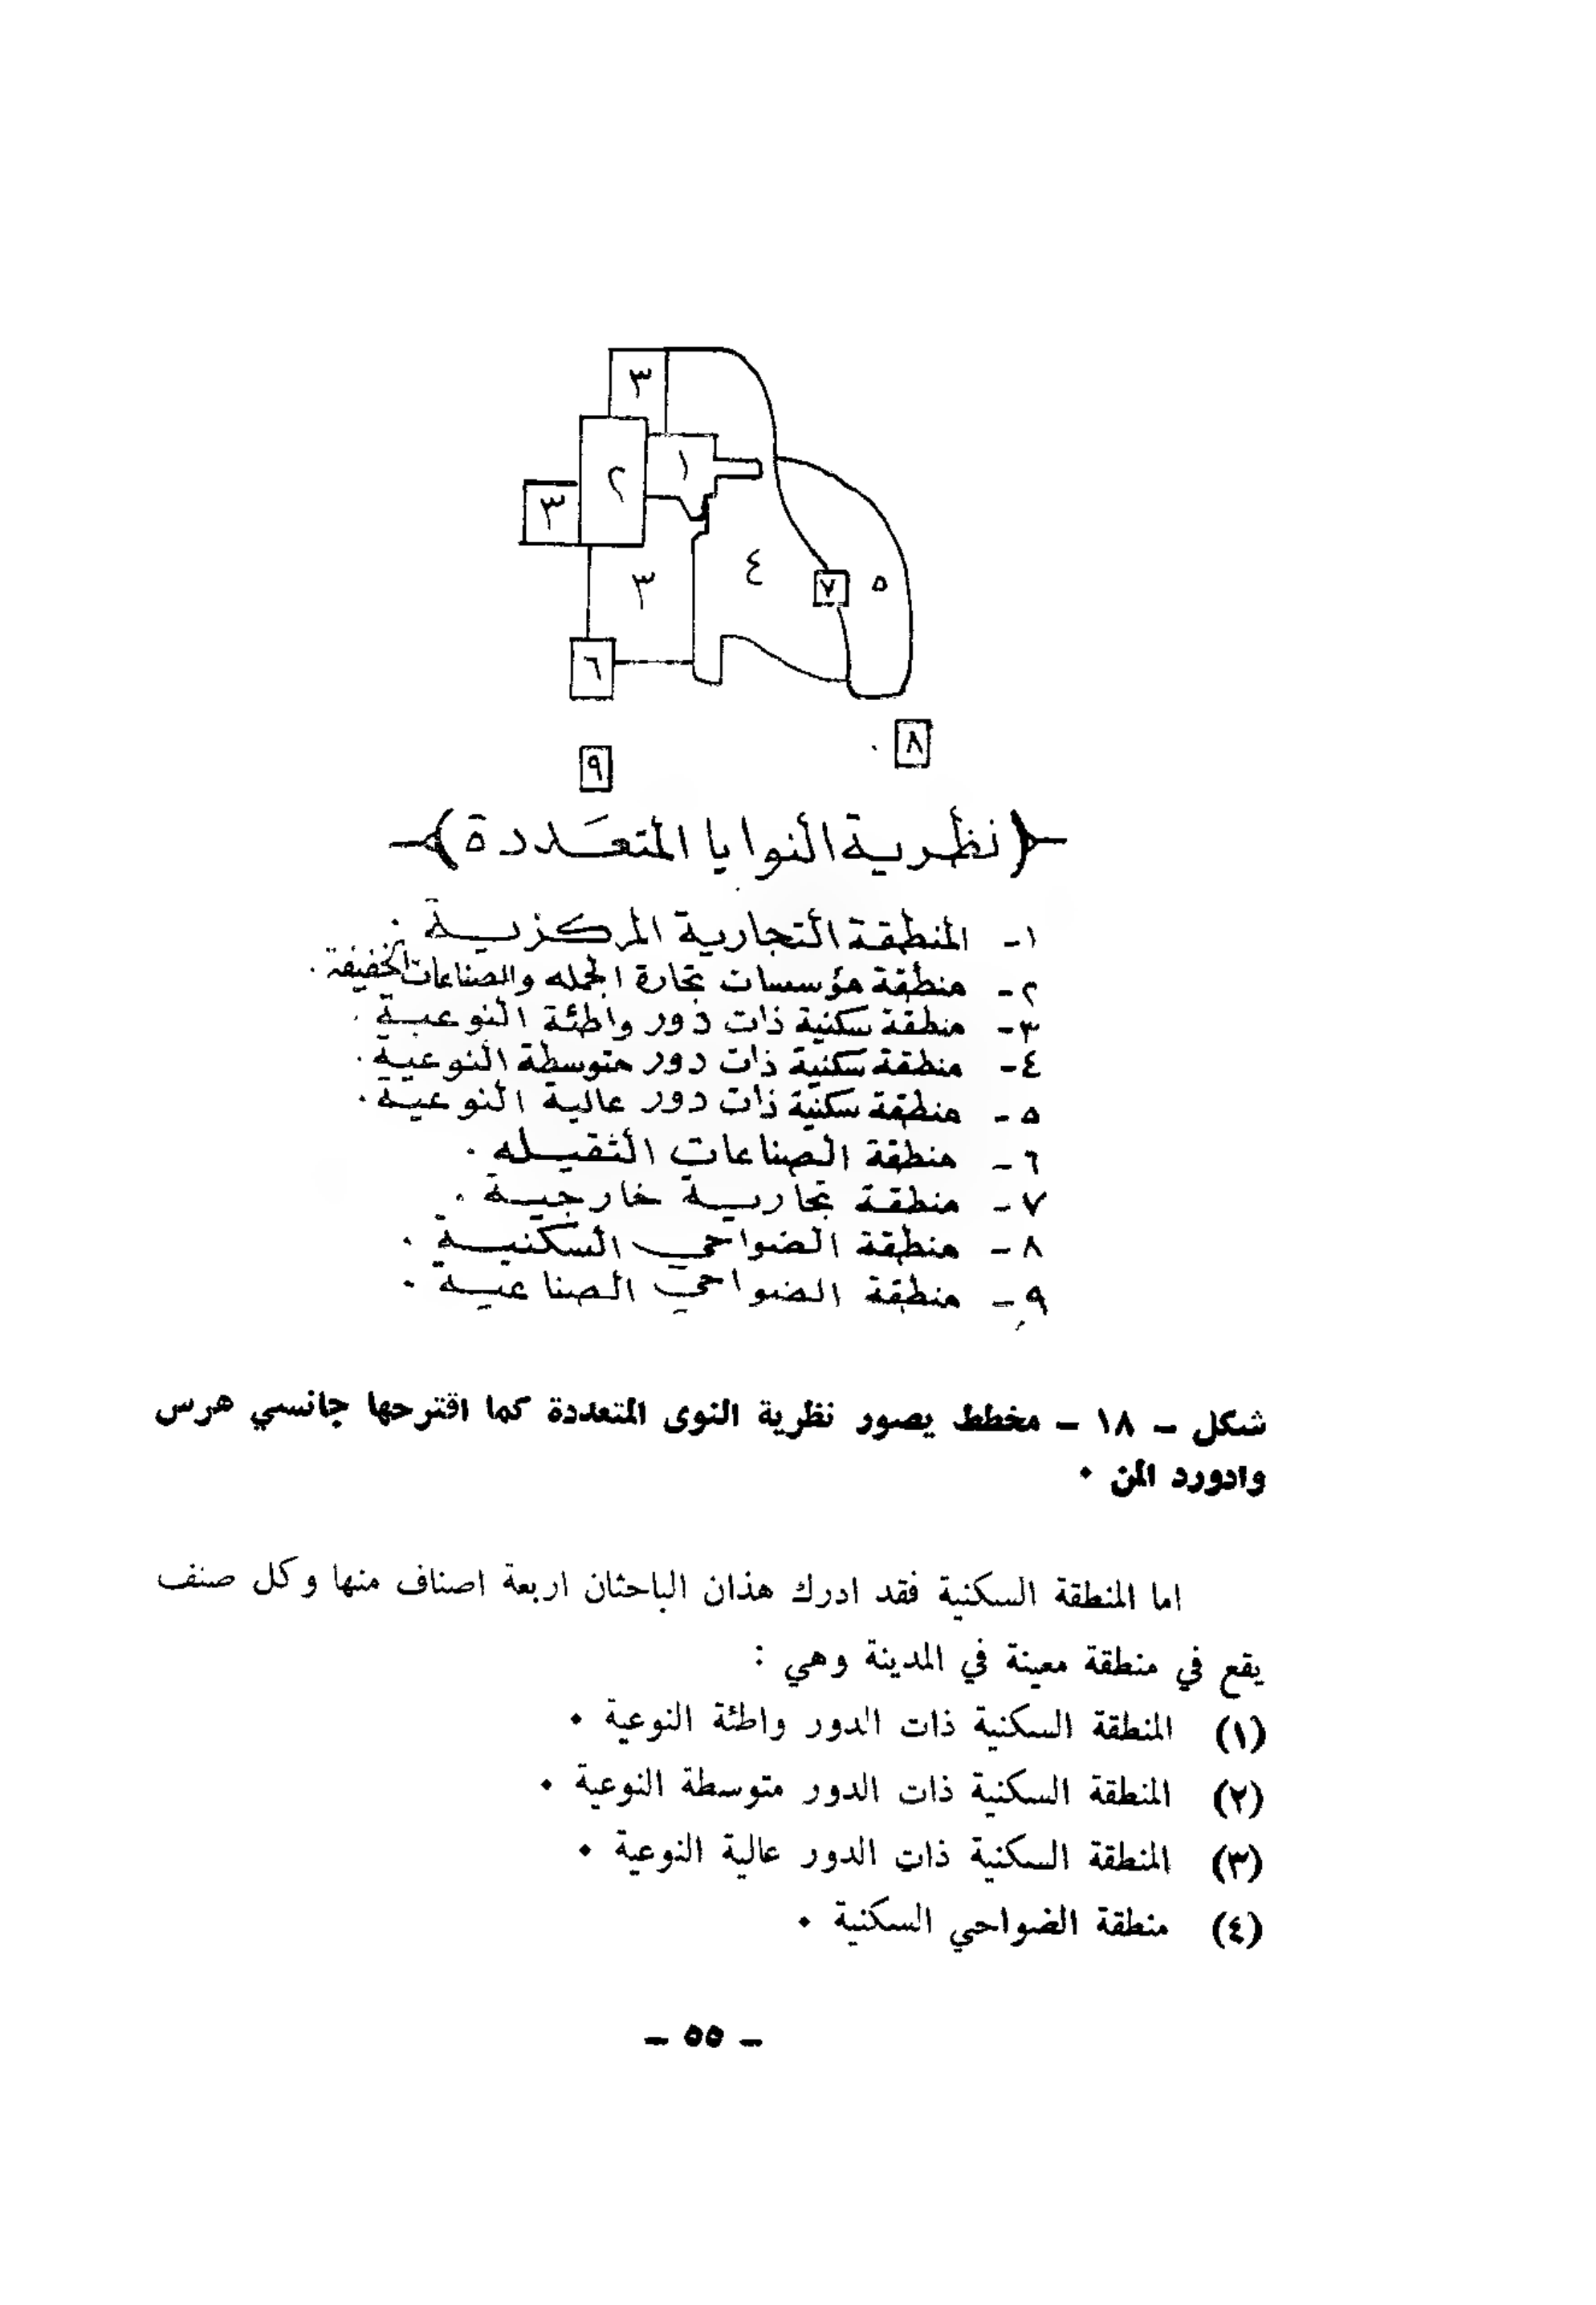 ٣
١
٢
٣
٤
٣
٧
٥
٦
٨
٩
(نظرية النوايا المتعددة)
١- المنطقة التجارية المركزية .
٢- منطقة مؤسسات تجارة الجمله والصناعات الخفيفة .
٣- منطقة سكنية ذات دور واطئة النوعية .
٤- منطقة سكنية ذات دور متوسطة النوعية .
٥- منطقة سكنية ذات دور عالية النوعية .
٦- منطقة الصناعات الثقيله .
٧- منطقة تجارية خارجية .
٨- منطقة الضواحي السكنية .
٩- منطقة الضواحي الصناعية .
شكل - ١٨ - مخطط يصور نظرية النوى المتعددة كما اقترحها جانسي هرس
وادورد المن ٠
اما المنطقة السكنية فقد ادرك هذان الباحثان اربعة اصناف منها وكل صنف
يقع في منطقة معينة في المدينة وهي :
(١) المنطقة السكنية ذات الدور واطئة النوعية ٠
(٢) المنطقة السكنية ذات الدور متوسطة النوعية ٠
(٣) المنطقة السكنية ذات الدور عالية النوعية ٠
(٤) منطقة الضواحي السكنية ٠
- ٥٥ -